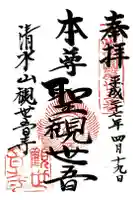 奉拝
平成二一年四月十九日
本尊聖観世音
清水山観世音寺